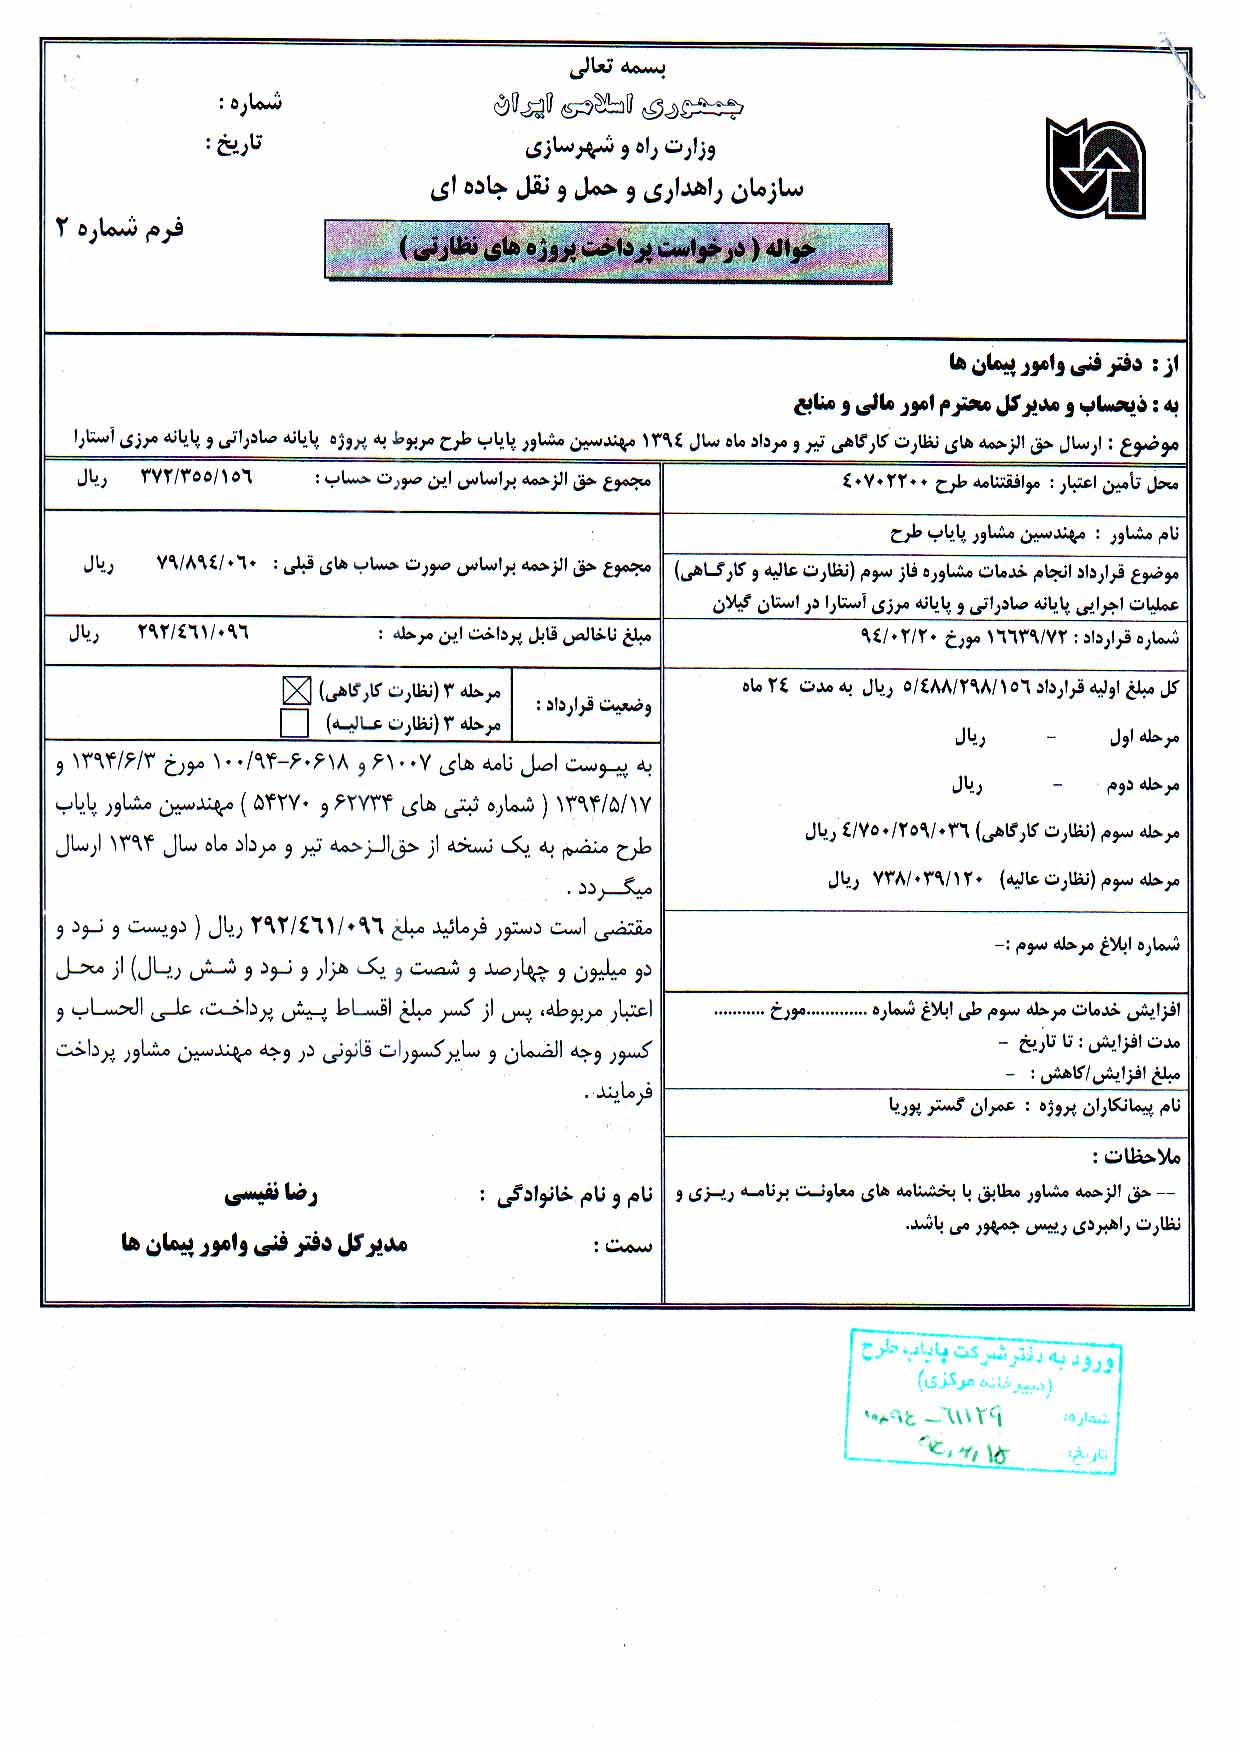 بسمه تعالی
جمهوری اسلامی ایران
وزارت راه و شهرسازی
سازمان راهداری و حمل و نقل جاده ای
شماره :
تاریخ :
فرم شماره ۲
حواله ( درخواست پرداخت پروژه های نظارتی )
از : دفتر فنی وامور پیمان ها
به : ذیحساب و مدیرکل محترم امور مالی و منابع
موضوع : ارسال حق الزحمه های نظارت کارگاهی تیر و مرداد ماه سال ۱۳۹٤ مهندسین مشاور پایاب طرح مربوط به پروژه پایانه صادراتی و پایانه مرزی آستارا
محل تأمین اعتبار : موافقتنامه طرح ٤۰۷۰۲۲۰۰
نام مشاور : مهندسین مشاور پایاب طرح
موضوع قرارداد انجام خدمات مشاوره فاز سوم (نظارت عالیه و کارگـاهی)
عملیات اجرایی پایانه صادراتی و پایانه مرزی آستارا در استان گیلان
شماره قرارداد : ۱٦٦۳۹/۷۲ مورخ ۹٤/۰۲/۲۰
کل مبلغ اولیه قرارداد ۵/٤۸۸/۲۹۸/۱۵٦ ریال به مدت ۲٤ ماه
مرحله اول - ریال
مرحله دوم - ریال
مرحله سوم (نظارت کارگاهی) ٤/۷۵۰/۲۵۹/۰۳٦ ریال
مرحله سوم (نظارت عالیه) ۷۳۸/۰۳۹/۱۲۰ ریال
شماره ابلاغ مرحله سوم :-
افزایش خدمات مرحله سوم طی ابلاغ شماره .............مورخ ...........
مدت افزایش : تا تاریخ -
مبلغ افزایش/کاهش : -
نام پیمانکاران پروژه : عمران گستر پوریا
ملاحظات :
-- حق الزحمه مشاور مطابق با بخشنامه های معاونـت برنامـه ریـزی و
نظارت راهبردی رییس جمهور می باشد.
مجموع حق الزحمه براساس این صورت حساب : ۳۷۲/۳۵۵/۱۵٦ ریال
مجموع حق الزحمه براساس صورت حساب های قبلی : ۷۹/۸۹٤/۰٦۰ ریال
مبلغ ناخالص قابل پرداخت این مرحله : ۲۹۲/٤٦۱/۰۹٦ ریال
وضعیت قرارداد :
مرحله ۳ (نظارت کارگاهی)
مرحله ۳ (نظارت عـالیـه)
به پیوست اصل نامه های ۶۱۰۰۷ و ۶۰۶۱۸-۱۰۰/۹۴ مورخ ۱۳۹۴/۶/۳ و
۱۳۹۴/۵/۱۷ ( شماره ثبتی های ۶۲۷۳۴ و ۵۴۲۷۰ ) مهندسین مشاور پایاب
طرح منضم به یک نسخه از حق‌الـزحمه تیر و مرداد ماه سال ۱۳۹۴ ارسال
میگـــردد .
مقتضی است دستور فرمائید مبلغ ۲۹۲/٤٦۱/۰۹٦ ریال ( دویست و نـود و
دو میلیون و چهارصد و شصت و یک هزار و نـود و شـش ریـال) از محـل
اعتبار مربوطه، پس از کسر مبلغ اقسـاط پـیش پرداخـت، علـی الحسـاب و
کسور وجه الضمان و سایرکسورات قانونی در وجه مهندسین مشاور پرداخت
فرمایند .
نام و نام خانوادگی : رضا نفیسی
سمت : مدیرکل دفتر فنی وامور پیمان ها
ورود به دفتر شرکت پایاب طرح
(دبیرخانه مرکزی)
شماره: ۶۱۱۲۹
تاریخ: